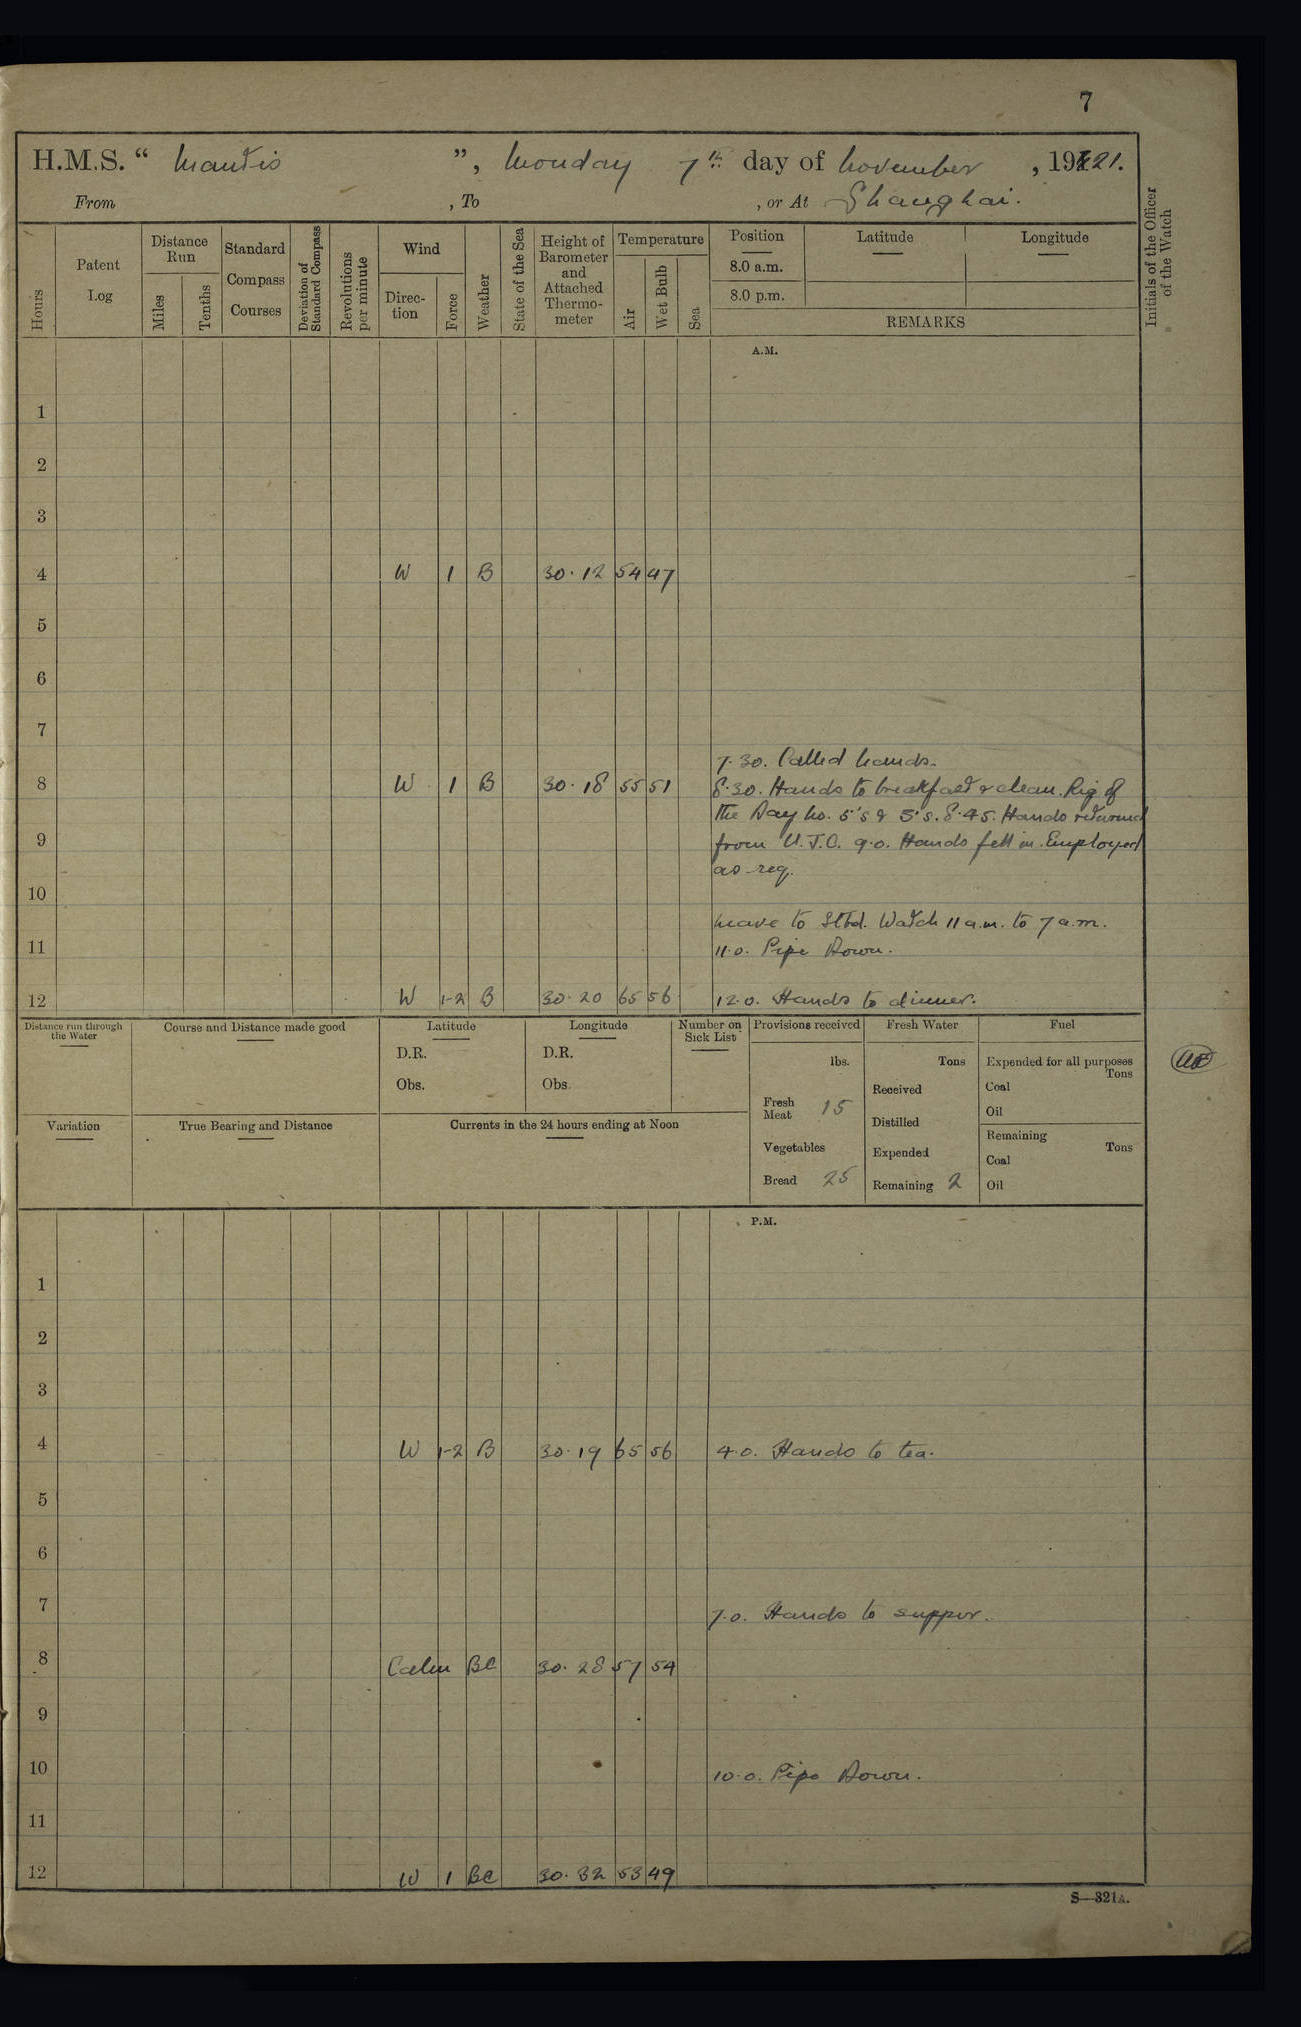 7
H.M.S. “ Mantis ”, Monday 7th day of November , 1921.
From , To , or At Shanghai.
Hours
Patent Log
Distance Run
Miles
Tenths
Standard Compass Courses
Deviation of Standard Compass
Revolutions per minute
Wind
Direc-tion
Force
Weather
State of the Sea
Height of Barometer and Attached Thermo-meter
Temperature
Air
Wet Bulb
Sea
Position
Latitude
Longitude
8.0 a.m.
8.0 p.m.
REMARKS
Initials of the Officer of the Watch
A.M.
1
2
3
4 W 1 B 30.12 54 47
5
6
7
7.30. Called hands.
8 W 1 B 30.18 55 51 8.30. Hands to breakfast & clean. Rig of
the Day No. 5's & 5's. 8.45. Hands returned
9 from U.J.C. 9.0. Hands fell in. Employed
as req.
10
Leave to Stbd. Watch 11 a.m. to 7 a.m.
11 11.0. Pipe Down.
12 W 1-2 B 30.20 65 56 12.0. Hands to dinner.
Distance run through the Water
Course and Distance made good
Latitude
D.R.
Obs.
Longitude
D.R.
Obs.
Number on Sick List
Provisions received
lbs.
Fresh Meat 15
Vegetables
Bread 25
Fresh Water
Tons
Received
Distilled
Expended
Remaining 2
Fuel
Expended for all purposes
Tons
Coal
Oil
Remaining
Tons
Coal
Oil
Variation
True Bearing and Distance
Currents in the 24 hours ending at Noon
P.M.
1
2
3
4 W 1-2 B 30.19 65 56 4.0. Hands to tea.
5
6
7 7.0. Hands to supper.
8 Calm BC 30.28 57 54
9
10 10.0. Pipe Down.
11
12 W 1 BC 30.32 53 49
S—321A.